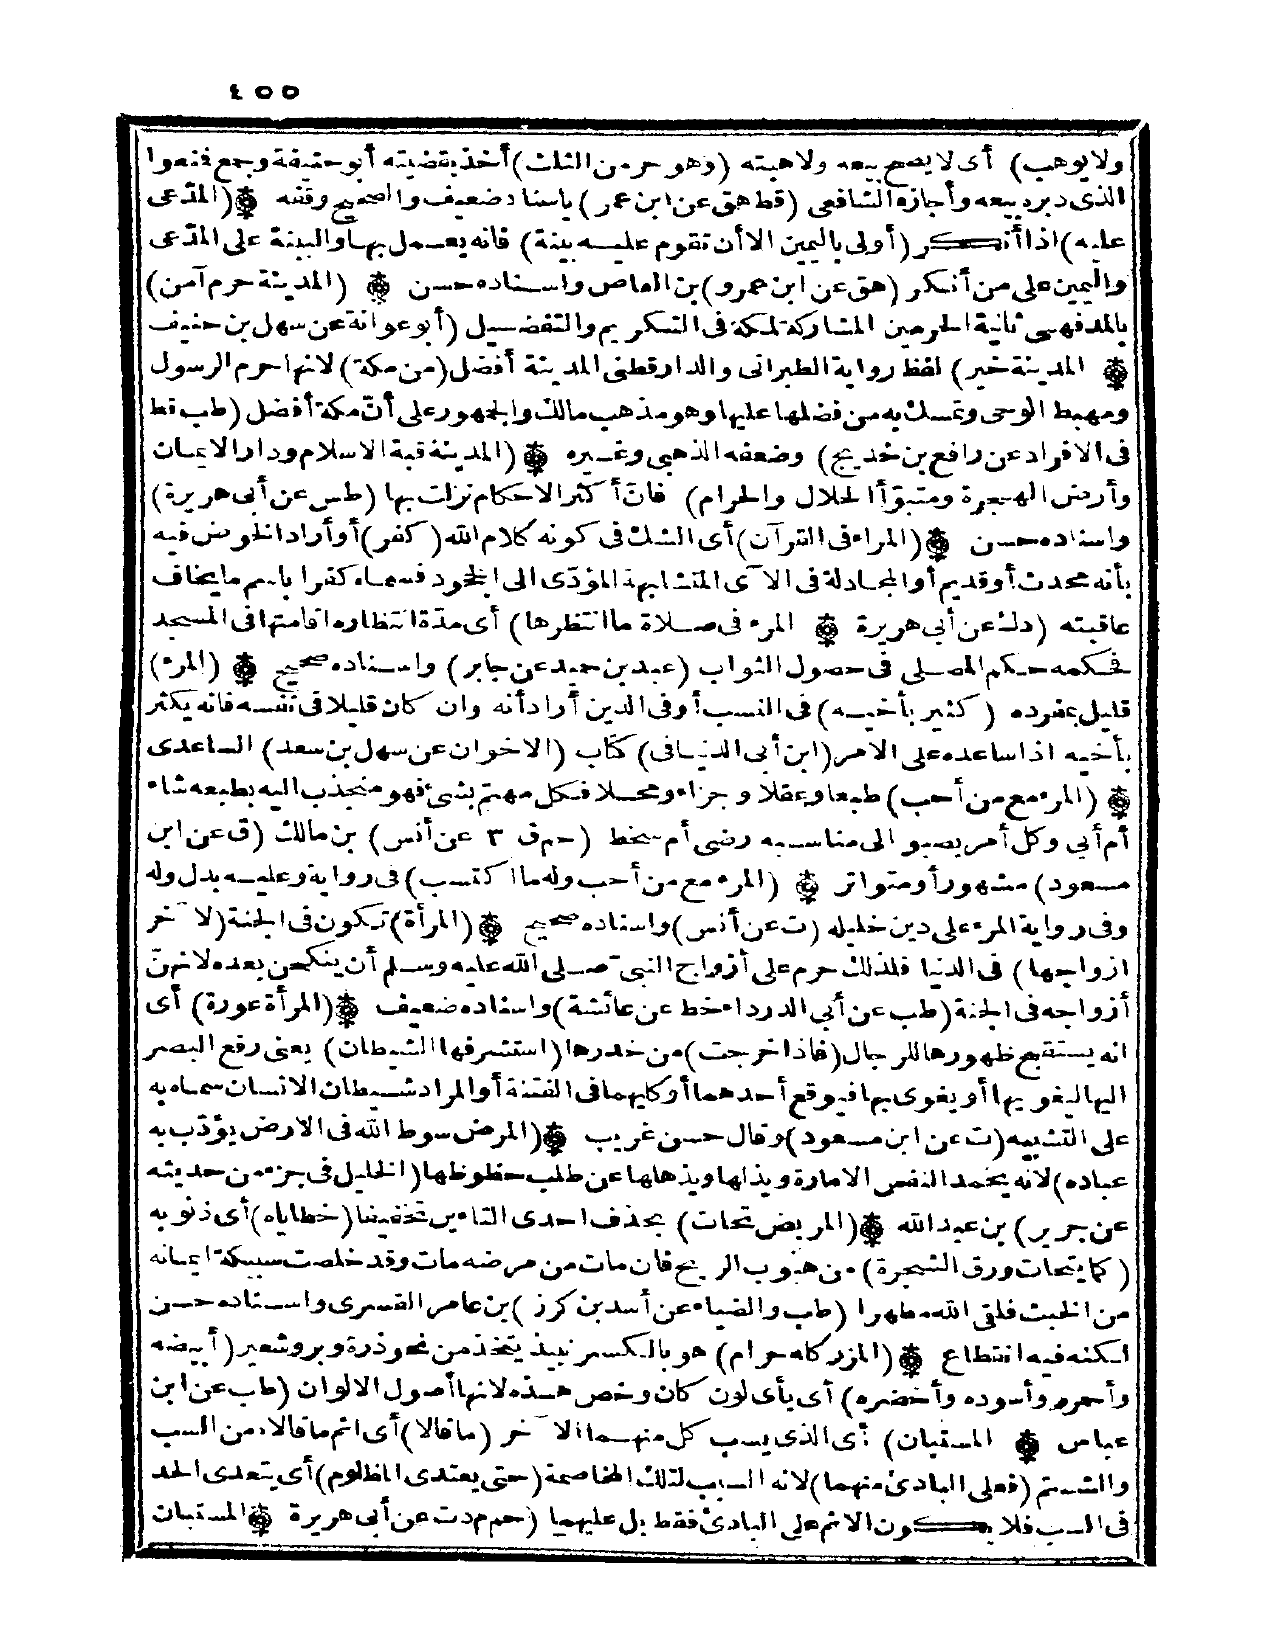 ٤٥٥
ولا يوهب) أى لا يصح بيعه ولا هبته (وهو حر من الثلث) أخذ بقضيته أبو حنيفة وجمع فنعوا
الذى دبر ربيعه وأجازه الشافعى (قط هق عن ابن عمر) باسناد ضعيف والصحيح وقفه ۞ (المدّعى
عليه) اذا أنكر (أولى باليمين الا أن تقوم عليه بينة) فانه يعمل بها والبينة على المدّعى
واليمين على من أنكر (هق عن ابن عمرو) بن العاص واسناده حسن ۞ (المدينة حرم آمن)
بالمد فهى ثانية الحرمين المشاركة لمكة فى التكريم والتفضيل (أبو عوانة عن سهل بن حنيف
۞ المدينة خير) لفظ رواية الطبرانى والدارقطنى المدينة أفضل (من مكة) لانها حرم الرسول
ومهبط الوحى وتمسك به من فضلها عليها وهو مذهب مالك والجمهور على أنّ مكة أفضل (طب قط
فى الافراد عن رافع بن خديج) وضعفه الذهبى وغيره ۞ (المدينة قبة الاسلام ودار الايمان
وأرض الهجرة ومتبوّأ الحلال والحرام) فانّ أكثر الاحكام نزلت بها (طس عن أبى هريرة)
واسناده حسن ۞ (المراء فى القرآن) أى الشك فى كونه كلام الله (كفر) أو أراد الخوض فيه
بأنه محدث أو قديم أو المجادلة فى الآى المتشابهة المؤدّى الى الجحود فسماه كفرا باسم ما يخاف
عاقبته (د ك عن أبى هريرة ۞ المرء فى صلاة ما انتظرها) أى مدّة انتظاره اقامتها فى المسجد
فحكمه حكم المصلى فى حصول الثواب (عبد بن حميد عن جابر) واسناده صحيح ۞ (المرء)
قليل بمفرده (كثير بأخيه) فى النسب أو فى الدين أراد أنه وان كان قليلا فى نفسه فانه يكثر
بأخيه اذا ساعده على الامر (ابن أبى الدنيا فى) كتاب (الاخوان عن سهل بن سعد) الساعدى
۞ (المرء مع من أحب) طبعا وعقلا وجزاء ومحلا فكل مهتم بشئ فهو منجذب اليه بطبعه شاء
أم أبى وكل أمر يصبو الى مناسبه رضى أم سخط (حم ق ٣ عن أنس) بن مالك (ق عن ابن
مسعود) مشهور أو متواتر ۞ (المرء مع من أحب وله ما اكتسب) فى رواية وعليه بدل وله
وفى رواية المرء على دين خليله (ت عن أنس) واسناده صحيح ۞ (المرأة) تكون فى الجنة (لآخر
ازواجها) فى الدنيا فلذلك حرم على أزواج النبىّ صلى الله عليه وسلم أن ينكحن بعده لانهنّ
أزواجه فى الجنة (طب عن أبى الدرداء خط عن عائشة) واسناده ضعيف ۞ (المرأة عورة) أى
انه يستقبح ظهورها للرجال (فاذا خرجت) من خدرها (استشرفها الشيطان) يعنى رفع البصر
اليها ليغويها أو يغوى بها فيوقع أحدهما أو كليهما فى الفتنة أو المراد شيطان الانسان سماه به
على التشبيه (ت عن ابن مسعود) وقال حسن غريب ۞ (المرض سوط الله فى الارض يؤدّب به
عباده) لانه يخمد النفس الامارة ويذلها ويذهلها عن طلب حظوظها (الخليل فى جزء من حديثه
عن جرير) بن عبد الله ۞ (المريض تحات) بحذف احدى التاءين تخفيفا (خطاياه) أى ذنوبه
(كما يتحات ورق الشجرة) من هبوب الريح فان مات من مرضه مات وقد خلصت سبيكة ايمانه
من الخبث فلقى الله مطهرا (طب والضياء عن أسد بن كرز) بن عامر القسرى واسناده حسن
لكنه فيه انقطاع ۞ (المزر كله حرام) هو بالكسر نبيذ يتخذ من نحو ذرة وبر وشعير (أبيضه
وأحمره وأسوده وأخضره) أى بأى لون كان وخص هذه لانها أصول الالوان (طب عن ابن
عباس ۞ المستبان) أى الذى يسب كل منهما الآخر (ما قالا) أى اثم ما قالاه من السب
والشتم (فعلى البادئ منهما) لانه السبب لتلك المخاصمة (حتى يعتدى المظلوم) أى يتعدى الحد
فى السب فلا يكون الاثم على البادئ فقط بل عليهما (حم م د ت عن أبى هريرة ۞ المستبان